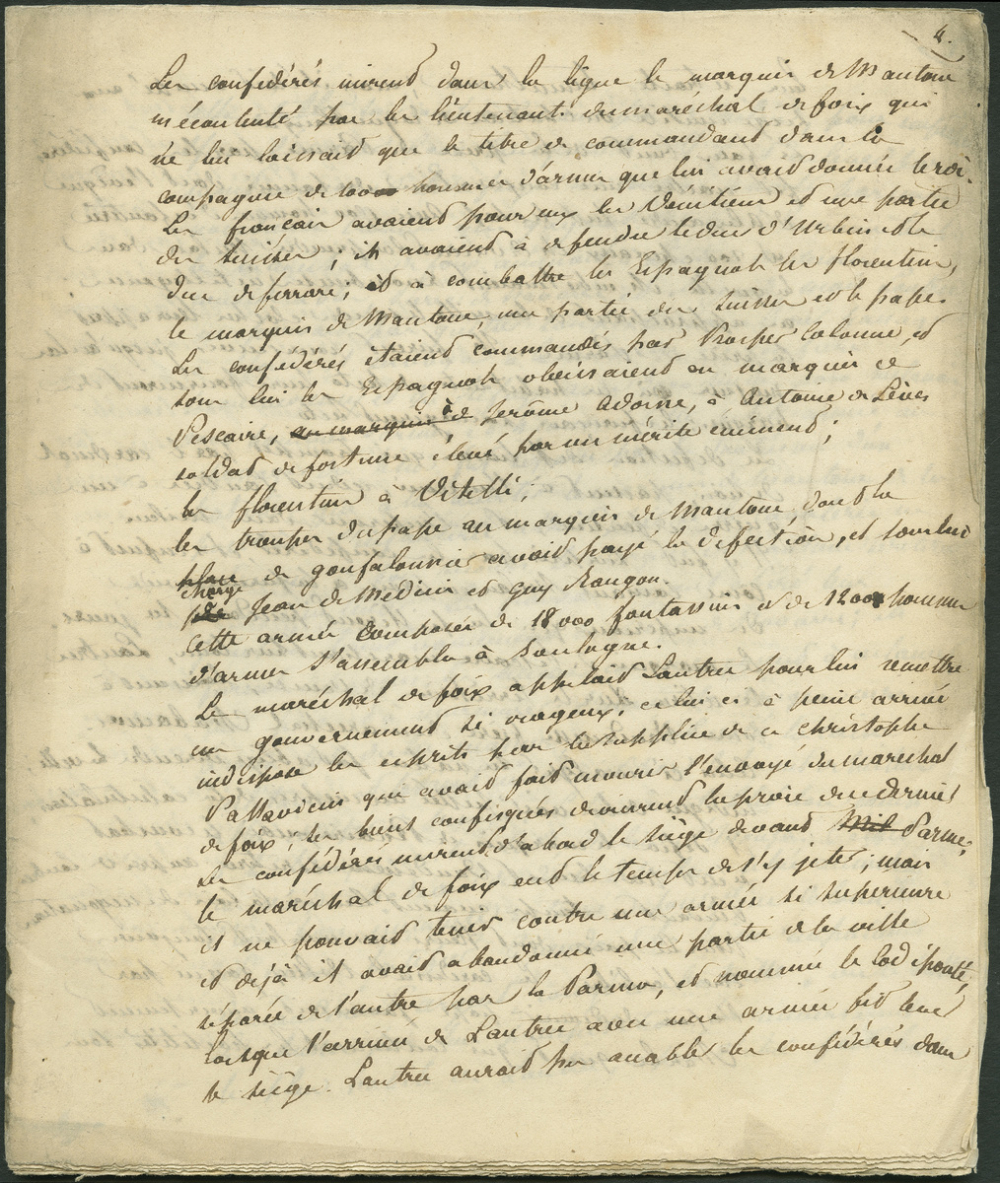 4.
Les confédérés mirent dans la ligue le marquis de Mantoue
mécontenté par les lieutenants du maréchal de foix qui
ne lui laissait que le titre de commandant dans la
compagnie de 1000 hommes d'armes que lui avait donnée le roi.
Les français avaient pour eux les Vénitiens et une partie
des suisses; ils avaient à defendre le duc d'Urbin et le
duc de ferrare; et à combattre les Espagnols les florentins,
le marquis de Mantoue, une partie des suisses et le pape.
Les confédérés étaient commandés par Prosper Colonne, et
sous lui les Espagnols obeissaient au marquis de
Pescaire, au marquis de à Jerôme Adorne, à Antoine de Lèves
soldat de fortune élevé par un mérite éminent;
les florentins à Vitelli;
les troupes du pape au marquis de Mantoue dont la
place de gonfalonnier avait payé la défection, et sous lui
charge
Jean de Médicis et Guy Rangon.
cette armée composée de 18000 fantassins et de 1200 hommes
d'armes s'assembla à Boulogne.
Le maréchal de foix appelait Lautrec pour lui remettre
un gouvernement si orageux; celui ci à peine arrivé
indispose les esprits par le supplice de ce christophe
Pallavicini que avait fait mourir l'envoyé du maréchal
de foix; ses biens confisqués devinrent la proie de ce dernier
Les confédérés mirent d'abord le siège devant Mil Parme;
le maréchal de foix eut le temps de s'y jeter; mais
il ne pouvait tenir contre une armée si superieure
et déjà il avait abandonné une partie de la ville
séparée de l'autre par la Parma, et nommée le Codiponté,
lorsque l'arrivée de Lautrec avec une armée fit lever
le siège. Lautrec aurait pu accabler les confédérés dans